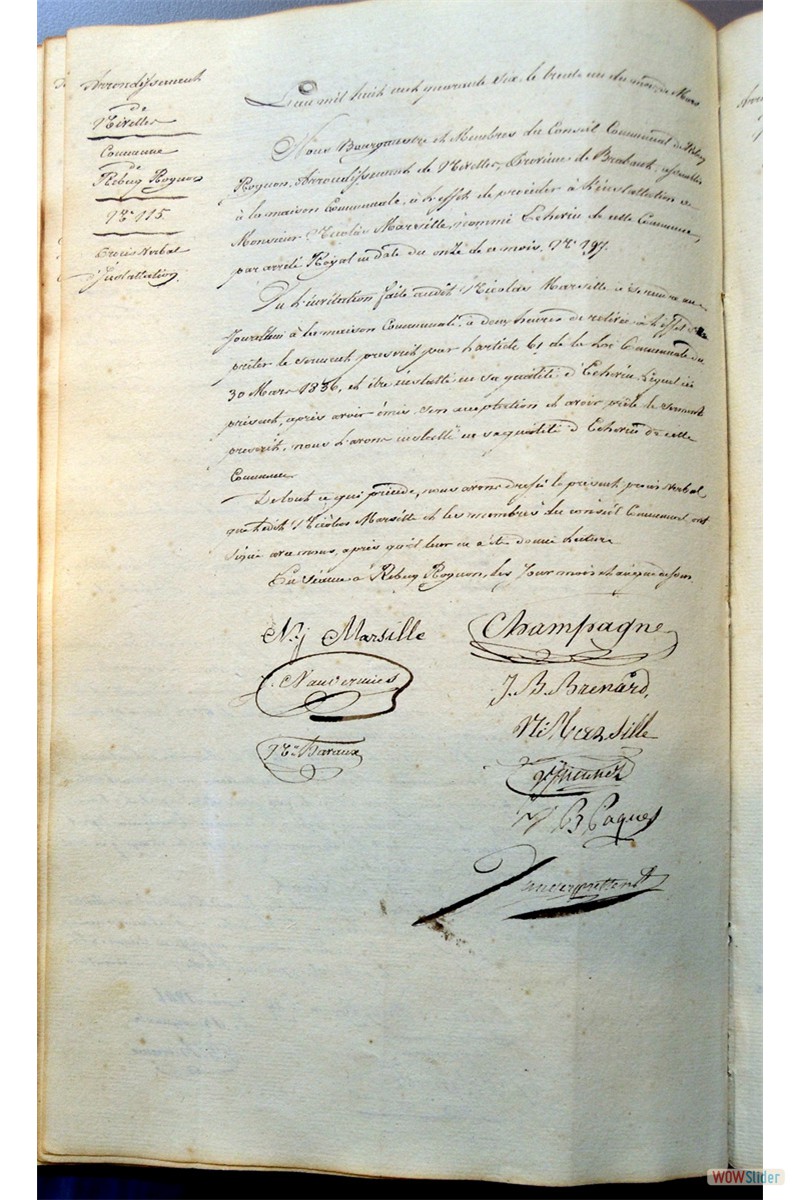 Arrondissement
de
Nivelles
Commune
de
Rebecq Rognon
N° 115
Procès Verbal
d'Installation
L'an mil huit cent quarante six, le trente un du mois de Mars
Nous Bourgmestre et Membres du Conseil Communal de Rebecq
Rognon, Arrondissement de Nivelles, Province de Brabant, assemblés
à la maison Communale, à l'effet de procéder à l'installation de
Monsieur Nicolas Marsille, nommé Echevin de cette Commune,
par arrêté Royal en date du onze de ce mois, N° 197.
Vu l'invitation faite audit Nicolas Marsille à se rendre
à la maison Communale, à deux heures de relevée à l'effet de
prêter le serment prescrit par l'article 61 de la Loi Communale du
30 Mars 1836, et être installé en sa qualité d'Echevin, Lequel ici
présent, après avoir émis son acceptation et avoir prêté le serment
prescrit, nous l'avons installé en sa qualité d'Echevin de cette
Commune
De tout ce qui précède, nous avons dressé le présent procès verbal
que ledit Nicolas Marsille et les membres du conseil Communal ont
signé avec nous, après qu'il leur en a été donné lecture
En séance à Rebecq Rognon, les Jour mois et an que dessus.
N.j Marsille
Champagne
J. B. Brenard
Marsille
J B Paques
WOWSlider